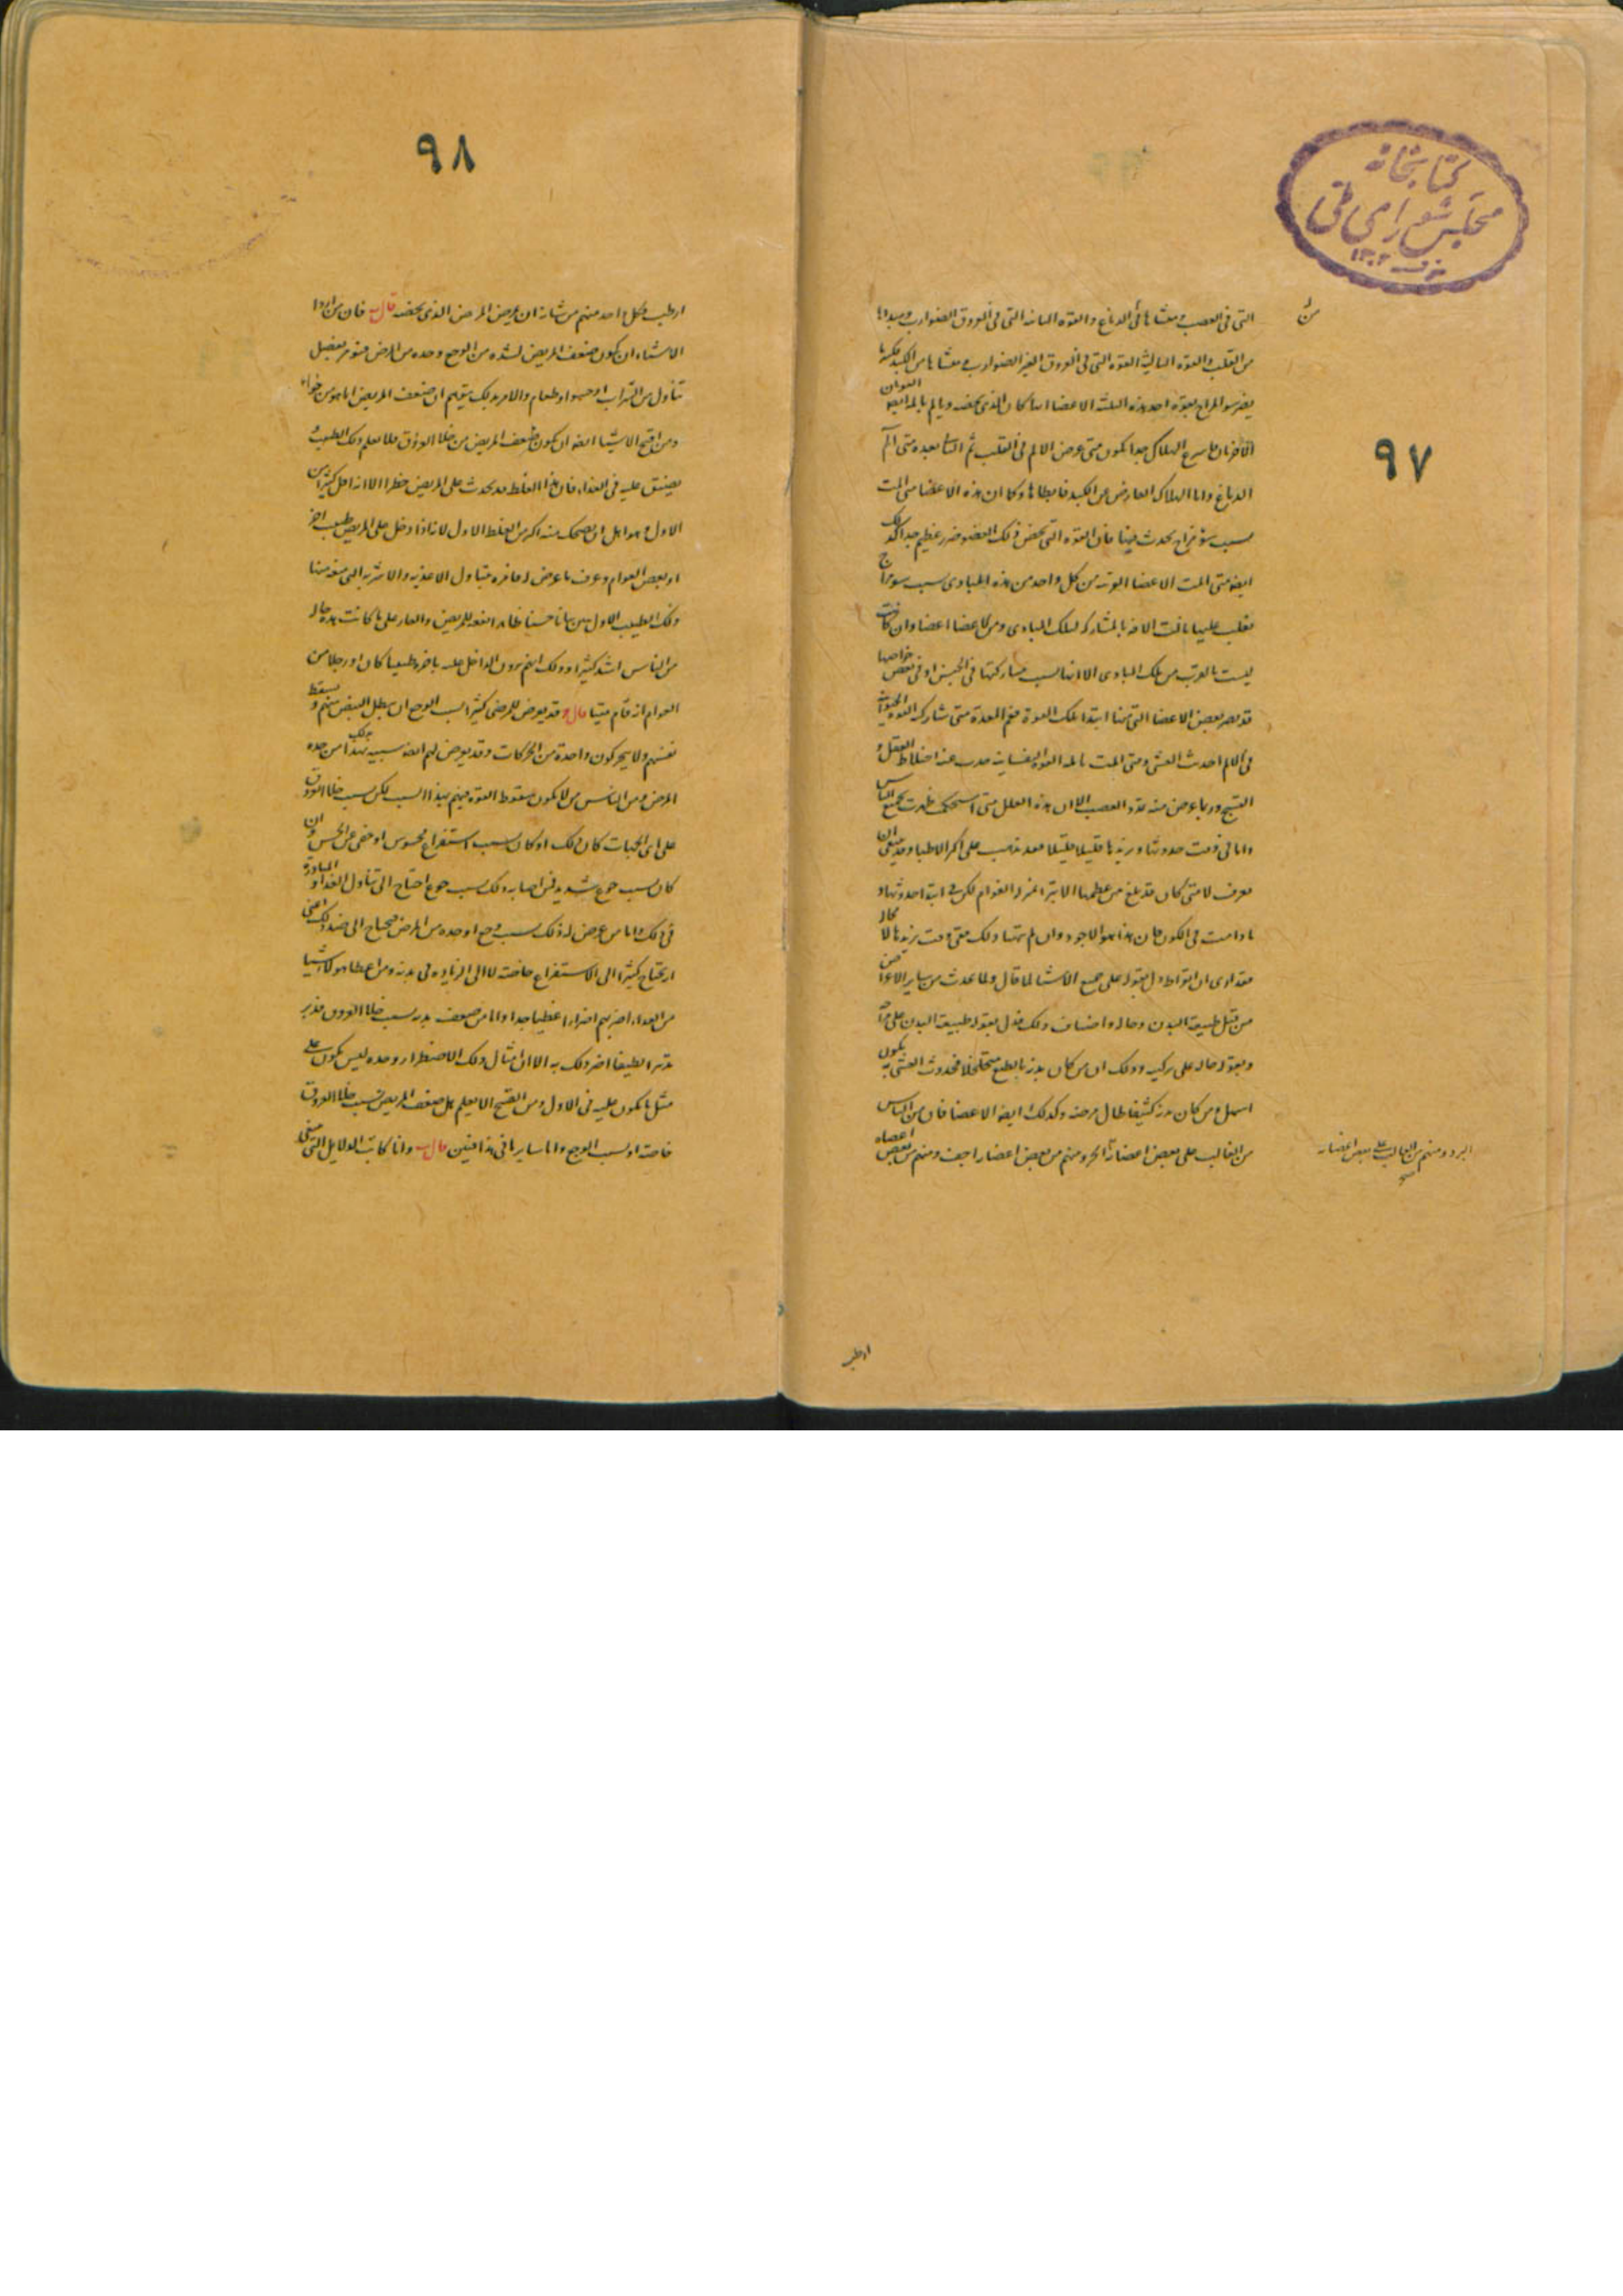 كتابخانه
مجلس شورای ملی
۱۳۰۲
۹۷
التى فى العصب ومنشاها فى الدماغ والقوه الثانيه التى فى العروق الضوارب ومبداها
من القلب والقوه الثالثة القوه التى فى العروق الغير الضوارب ومنشاها من الكبد
يضر سو المزاج بقوه احد هذه الثلثه الاعضا ايها كان الذى يخصه ويالم بالمه القوتان
الاخرتان سريع الهلاك جدا يكون متى عرض الالم فى القلب ثم الثانى بعده متى الم
الدماغ واما الهلاك العارض عن الكبد فابطاها وكما ان هذه الاعضا متى المت
بسبب سوء مزاج يحدث فيها فان القوه التى تخص ذلك العضو ضرر عظيم جدا كذلك
ايضا متى المت الاعضا التى من كل واحد من هذه المبادى بسبب سو مزاج
يغلب عليها نالت الافه بالمشاركه لتلك المبادى ومن الاعضا اعضا وان كانت
ليست بالقرب من تلك المبادى الا انها بسبب مشاركتها فى الجنس او فى بعض خواصها
قد يضر بعض الاعضا التى منها ابتدا تلك القوة ففم المعدة متى شارك القوه الحيوانية
فى الالم احدث الغشى ومتى المت بالمه القوه النفسانيه حدث عنه اختلاط العقل و
التشنج وربما عرض منه تمدد العصب الا ان هذه العلل متى استحكمت ظهرت لجميع الناس
واما فى وقت حدوثها وتزيدها قليلا قليلا فقد تذهب على اكثر الاطبا وقد ينبغى ان
تعرف لا متى كان قد بلغ من عظمها الا تستر عن العوام لكن فى ابتدا حدوثها و
ما دامت فى الكون فان هذا هو الاجود وان لم يتهيا ذلك ففى وقت تزيدها لا محالة
فقد ارى ان ابقراط دل بقوله على جميع الاشيا لما قال ولما يحدث من ساير الاعراض
من قبل طبيعة البدن وحاله واصناف ذلك فدل بقوله طبيعة البدن على مزاجه
وبقوله حاله على تركيبه وذلك ان من كان بدنه بالطبع متخلخلا فحدوث الغشى به يكون
اسهل ومن كان بدنه كثيفا طال مرضه وكذلك ايضا الاعضا فان من الناس
من الغالب على بعض اعضائه الحر ومنهم من بعض اعضاه اجف ومنهم من بعض اعضاه
البرد ومنهم من الغالب على بعض اعضائه
صح
ارطب
۹۸
ارطب وكل احد منهم من شانه ان يمرض المرض الذى يخصه قال فان من اردا
الاشياء ان يكون ضعف المريض لشده من الوجع وحده من المرض فيتوهم بفضل
تناول من الشراب او حسو او طعام والامر بذلك يتهم ان ضعف المريض انما هو من خواء
ومن اقبح الاشيا ايضا ان يكون ضعف المريض من خلا العروق فلا يعلم ذلك الطبيب و
يضيق عليه فى الغذاء فان هذا الغلط قد يحدث على المريض خطرا الا انه اقل كثيرا من
الاول وهو اهل ان يضحك منه اكثر من الغلط الاول لانه اذا دخل على المريض طبيب اخر
او بعض العوام وعرف ما عرض له فامره بتناول الاغذيه والاشربه التى منعه منها
ذلك الطبيب الاول تبين بيانا حسنا ظاهرا نفعه للمريض والعار على ما كانت هذه حاله
من الناس اشد كثيرا وذلك انهم يرون الداخل عليه باخره طبيبا كان او رجلا من
العوام انه اقام ميتا قال وقد يعرض للمرضى كثيرا بسبب الوجع ان يبطل النبض منهم و يسقط
نفسهم ولا يتحركون واحدة من الحركات وقد يعرض لهم ايضا سبب شبيه بهذا من حده
المرض ومن الناس من لا يكون سقوط القوه منهم بهذا السبب لكن بسبب خلا العروق
على اى الجهات كان ذلك او كان بسبب استفراغ محسوس او خفى عن الحس وان
كان بسبب جوع شديد فمن اصابه ذلك بسبب جوع احتاج الى تناول الغذا و المبادرة
فى ذلك واما من عرض له ذلك بسبب وجع او حده من المرض فيحتاج الى ضد ذلك اعنى
انه يحتاج كثيرا الى الاستفراغ خاصه لا الى الزياده فى بدنه ومن اعطا هولاء شيا
من الغذاء اضر بهم اضرارا عظيما جدا واما من ضعف بدنه بسبب خلا العروق فدبر
تدبيرا لطيفا اضر ذلك به الا ان امثال ذلك الاضطرار وحده ليس يكون على
مثل ما يكون عليه فى الاول ومن القبح الا يعلم هل ضعف المريض بسبب خلا العروق
خاصة او بسبب الوجع واما ساير ما فى هذا فبين قال وانا كاتب الدلايل التى